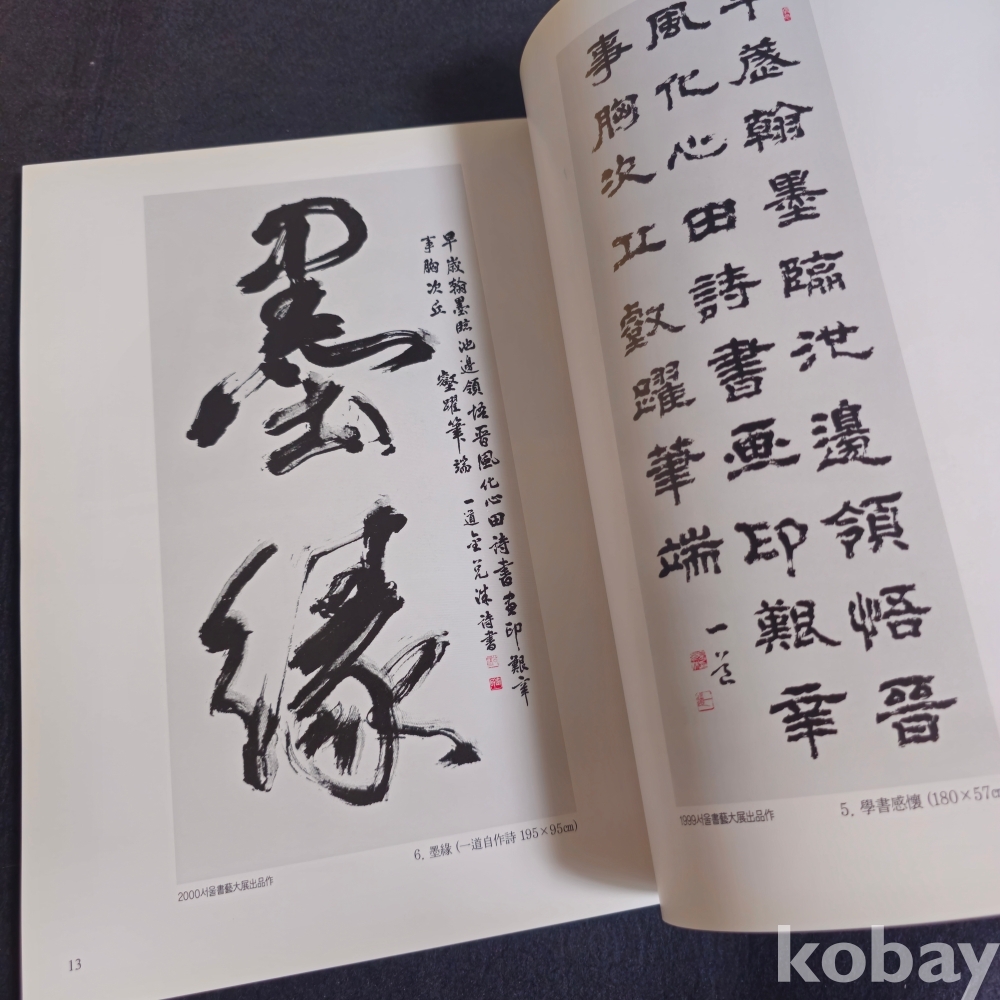 墨緣
早歲翰墨臨池邊領悟晉風化心田詩書畫印艱辛
事胸次丘壑躍筆端 一道金兌洙詩書
6. 墨緣 (一道自作詩 195×95㎝)
2000서울書藝大展出品作
13
早歲翰墨臨池邊領悟晉
風化心田詩書画印艱辛
事胸次丘壑躍筆端 一道
5. 學書感懷 (180×57㎝
1999서울書藝大展出品作
kobay